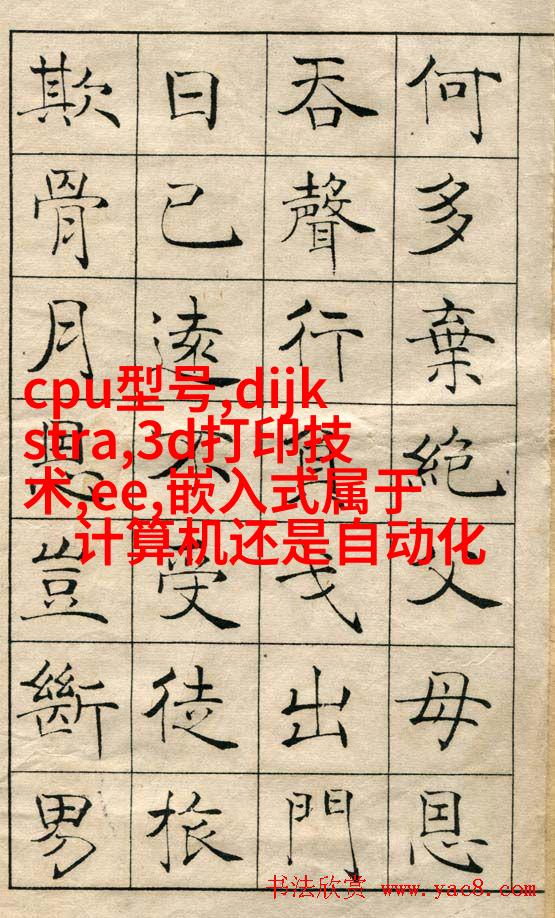 何多棄絕父母恩
吞聲行負戈出門
日已遠不受徒旅
欺骨月恩豈斷男
cpu型号,dijk
stra,3d打印技
术,ee,嵌入式属于
计算机还是自动化
书法欣赏 www.yac8.com